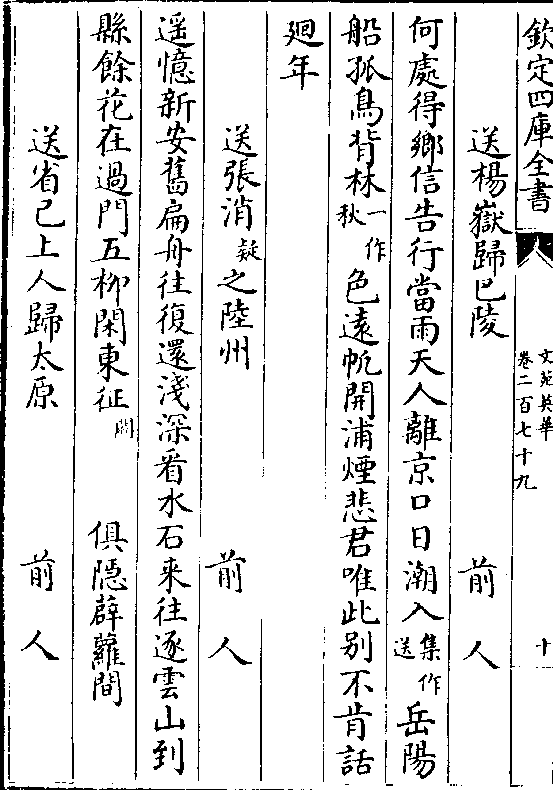 欽定四庫全書
文苑英華
卷二百七十九
十
送楊嶽歸巴陵　前人
何處得鄉信告行當雨天人離京口日潮入集作送岳陽
船孤鳥背林一作秋色遠帆開浦煙悲君唯此别不肯話
廻年
送張消疑之陸州　前人
遥憶新安舊扁舟往復還淺深看水石來往逐雲山到
縣餘花在過門五柳閑東征闕　俱隠薜蘿間
送省己上人歸太原　前人